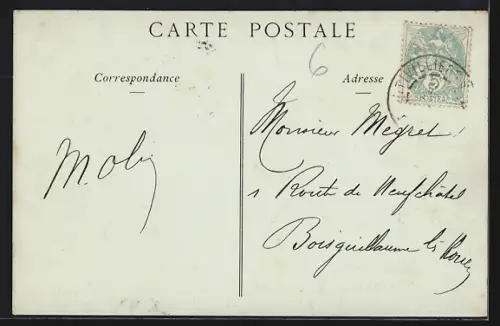 CARTE POSTALE
6
Correspondance
Adresse
5
POSTES
M. Obi
Monsieur Megret
1 Route de Neufchâtel
Boisguillaume lès Rouen